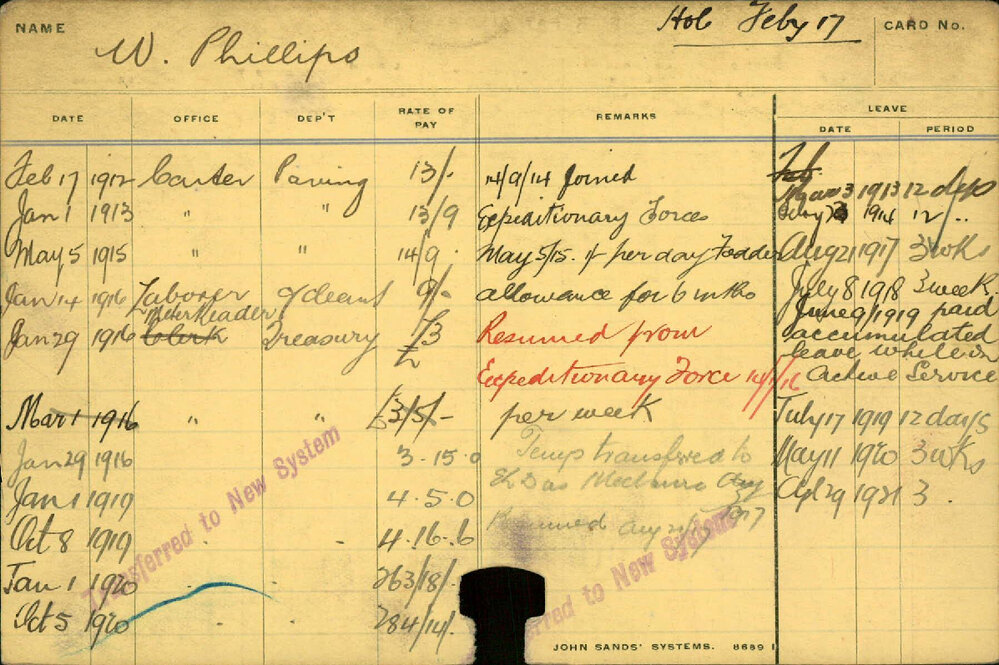 NAME W. Phillips Hob Feby 17 CARD No.
DATE OFFICE DEP'T RATE OF PAY REMARKS LEAVE
DATE PERIOD
Feb 17 1912 Carter Paving 13/- 14/9/14 Joined
3 1913 12 days
Jan 1 1913 " " 13/9 Expeditionary Forces 1914 12 "
May 5 1915 " " 14/9 May 5/15. 1/- per day Fodder Aug 21 1917 3 wks
Jan 14 1916 Laborer Cleans 9/- allowance for 6 mths July 8 1918 3 week
Meter Reader
Jan 29 1916 Clerk Treasury £3 Resumed from June 9/1919 paid
accumulated
leave while on
Expeditionary Force 14/1/16 Active Service
Mar 1 1916 " " £3/5/- per week July 17 1919 12 days
Jan 29 1916 3.15.0 Temp transferred to May 11 1920 3 wks
Jan 1 1919 4.5.0 Aug Apl 29 1921 3 "
Oct 8 1919 4.16.6 Resumed Aug 1917
Jan 1 1920 263/18/-
Oct 5 1920 284/14/-
Transferred to New System
Transferred to New System
JOHN SANDS' SYSTEMS. 8689